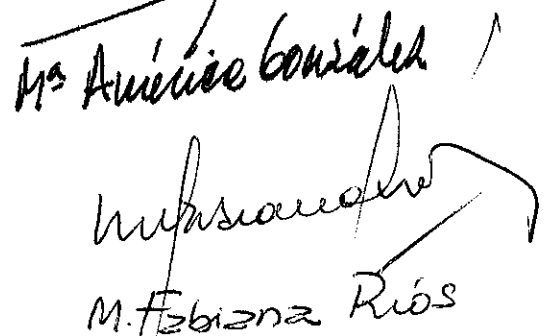 Mª América González
M. Fabiana Ríos